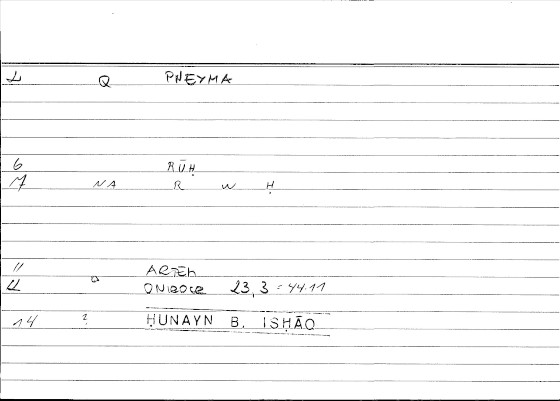 Q PNEYMA
6 RŪḤ
7 NA R W Ḥ
11 ARTEM
ONIROCR 23,3 = 44.11
14 ḤUNAYN B. ISḤĀQ